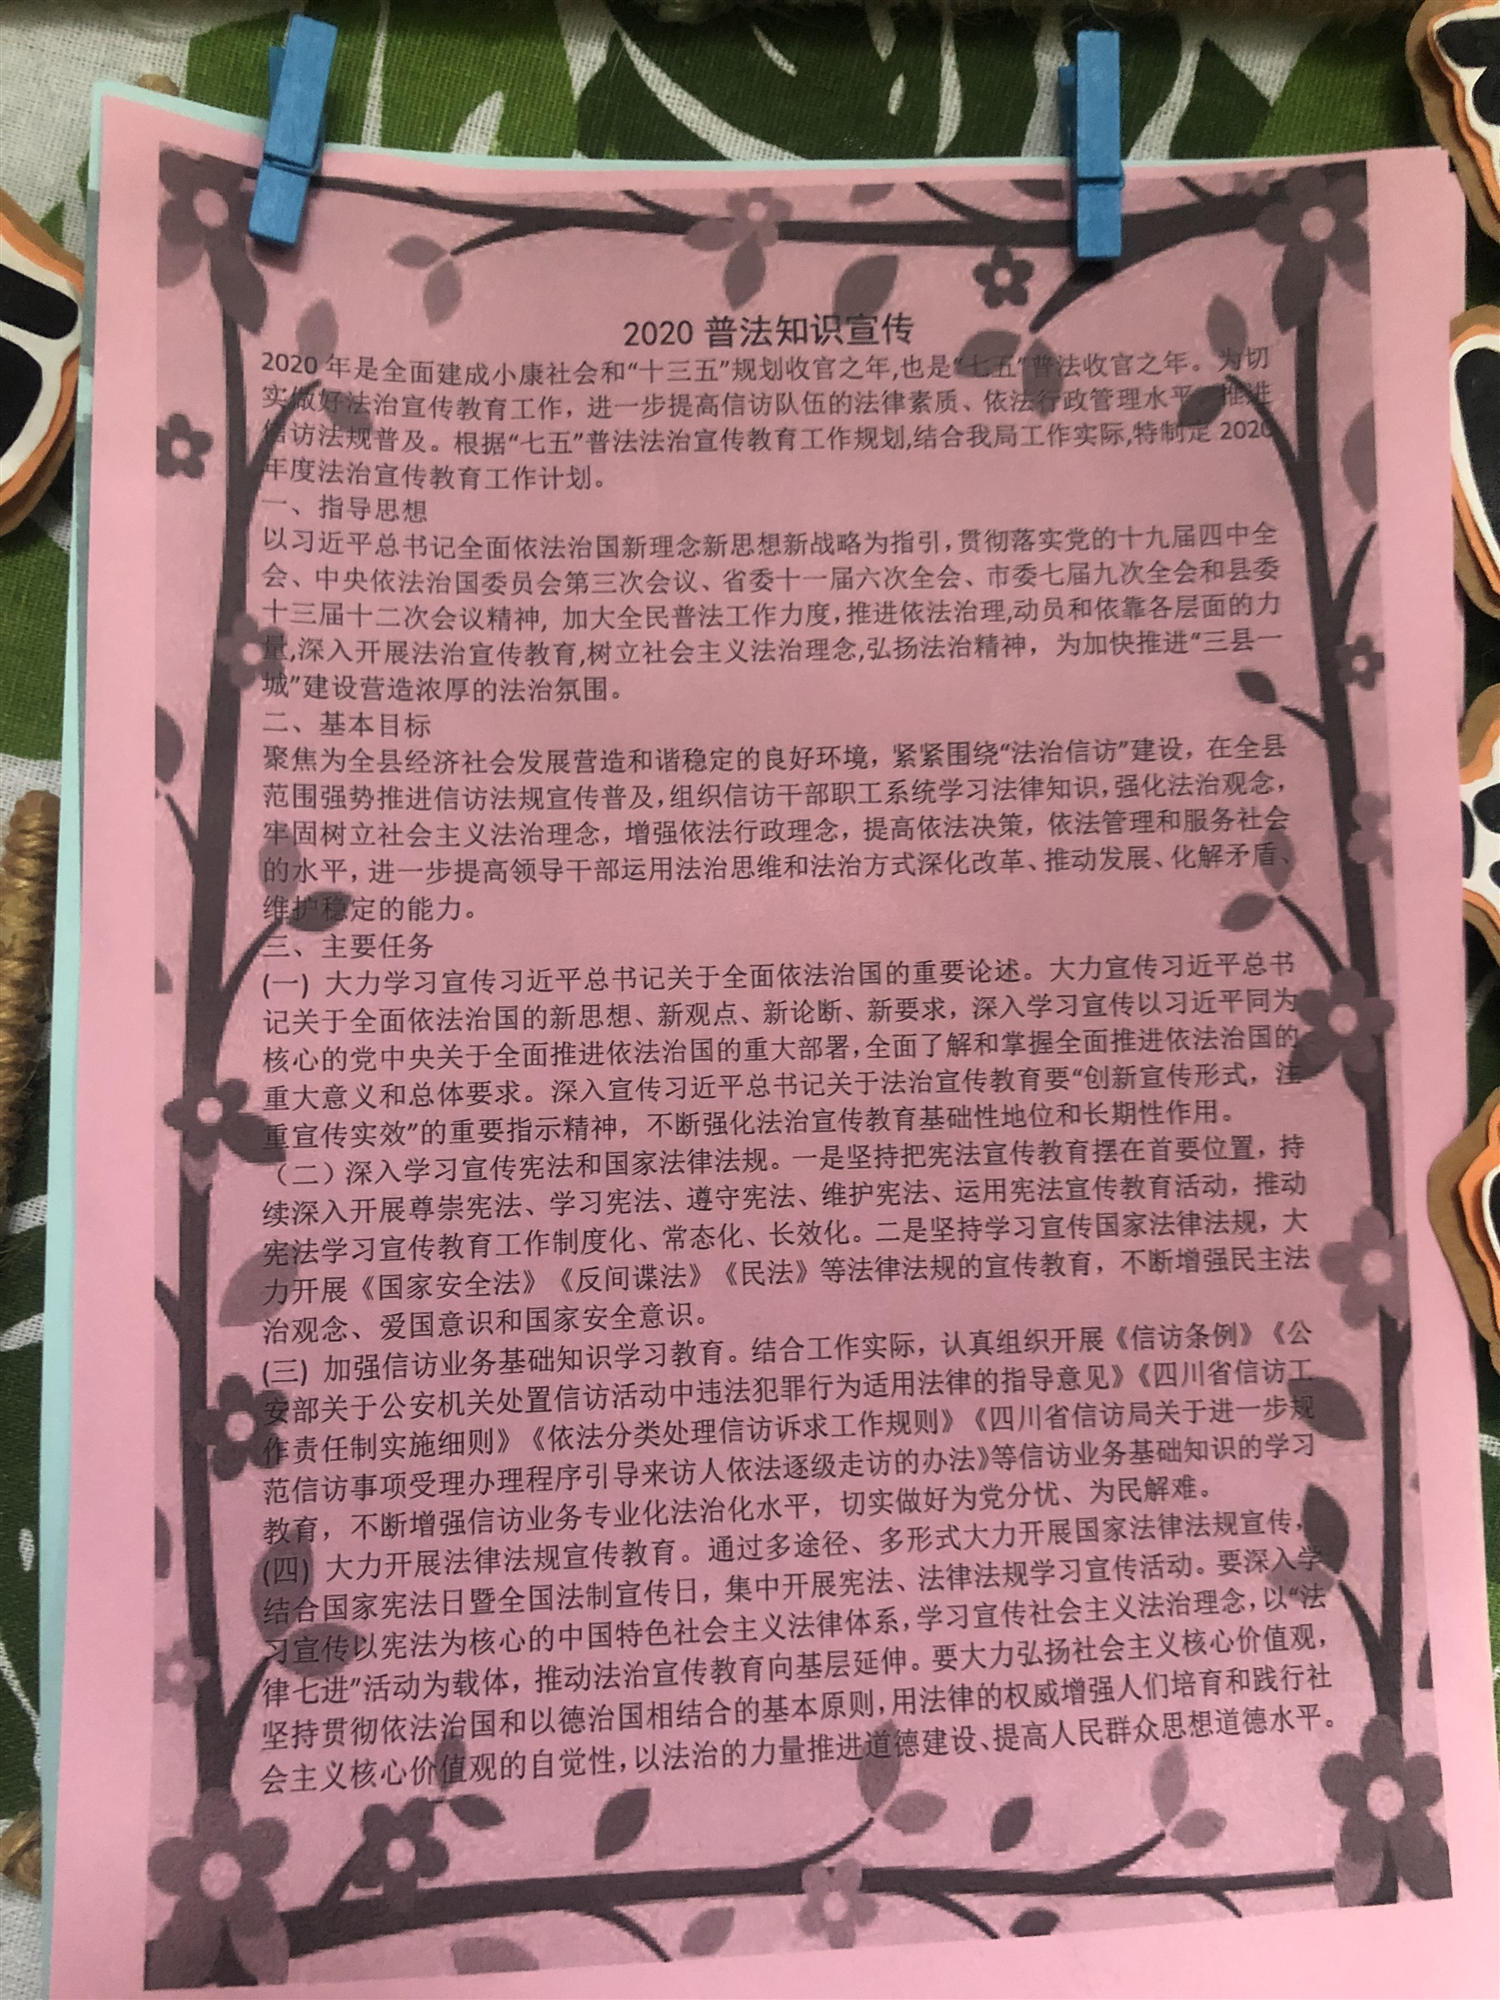 2020 普法知识宣传
2020 年是全面建成小康社会和“十三五”规划收官之年,也是“七五”普法收官之年。为切
实做好法治宣传教育工作，进一步提高信访队伍的法律素质、依法行政管理水平，推进
信访法规普及。根据“七五”普法法治宣传教育工作规划,结合我局工作实际,特制定 2020
年度法治宣传教育工作计划。
一、指导思想
以习近平总书记全面依法治国新理念新思想新战略为指引，贯彻落实党的十九届四中全
会、中央依法治国委员会第三次会议、省委十一届六次全会、市委七届九次全会和县委
十三届十二次会议精神, 加大全民普法工作力度，推进依法治理,动员和依靠各层面的力
量,深入开展法治宣传教育,树立社会主义法治理念,弘扬法治精神，为加快推进“三县一
城”建设营造浓厚的法治氛围。
二、基本目标
聚焦为全县经济社会发展营造和谐稳定的良好环境，紧紧围绕“法治信访”建设，在全县
范围强势推进信访法规宣传普及，组织信访干部职工系统学习法律知识，强化法治观念，
牢固树立社会主义法治理念，增强依法行政理念，提高依法决策，依法管理和服务社会
的水平，进一步提高领导干部运用法治思维和法治方式深化改革、推动发展、化解矛盾、
维护稳定的能力。
三、主要任务
(一) 大力学习宣传习近平总书记关于全面依法治国的重要论述。大力宣传习近平总书
记关于全面依法治国的新思想、新观点、新论断、新要求，深入学习宣传以习近平同为
核心的党中央关于全面推进依法治国的重大部署，全面了解和掌握全面推进依法治国的
重大意义和总体要求。深入宣传习近平总书记关于法治宣传教育要“创新宣传形式，注
重宣传实效”的重要指示精神，不断强化法治宣传教育基础性地位和长期性作用。
（二）深入学习宣传宪法和国家法律法规。一是坚持把宪法宣传教育摆在首要位置，持
续深入开展尊崇宪法、学习宪法、遵守宪法、维护宪法、运用宪法宣传教育活动，推动
宪法学习宣传教育工作制度化、常态化、长效化。二是坚持学习宣传国家法律法规，大
力开展《国家安全法》《反间谍法》《民法》等法律法规的宣传教育，不断增强民主法
治观念、爱国意识和国家安全意识。
(三) 加强信访业务基础知识学习教育。结合工作实际，认真组织开展《信访条例》《公
安部关于公安机关处置信访活动中违法犯罪行为适用法律的指导意见》《四川省信访工
作责任制实施细则》《依法分类处理信访诉求工作规则》《四川省信访局关于进一步规
范信访事项受理办理程序引导来访人依法逐级走访的办法》等信访业务基础知识的学习
教育，不断增强信访业务专业化法治化水平，切实做好为党分忧、为民解难。
(四) 大力开展法律法规宣传教育。通过多途径、多形式大力开展国家法律法规宣传，
结合国家宪法日暨全国法制宣传日，集中开展宪法、法律法规学习宣传活动。要深入学
习宣传以宪法为核心的中国特色社会主义法律体系，学习宣传社会主义法治理念，以“法
律七进”活动为载体，推动法治宣传教育向基层延伸。要大力弘扬社会主义核心价值观，
坚持贯彻依法治国和以德治国相结合的基本原则，用法律的权威增强人们培育和践行社
会主义核心价值观的自觉性，以法治的力量推进道德建设、提高人民群众思想道德水平。